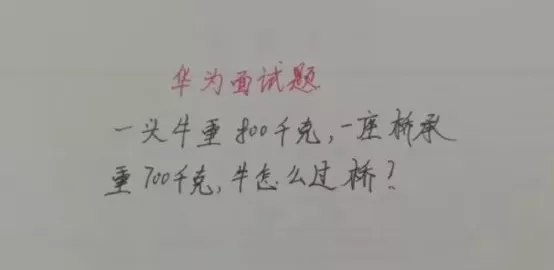 华为面试题
一头牛重800千克,一座桥承
重700千克,牛怎么过桥?